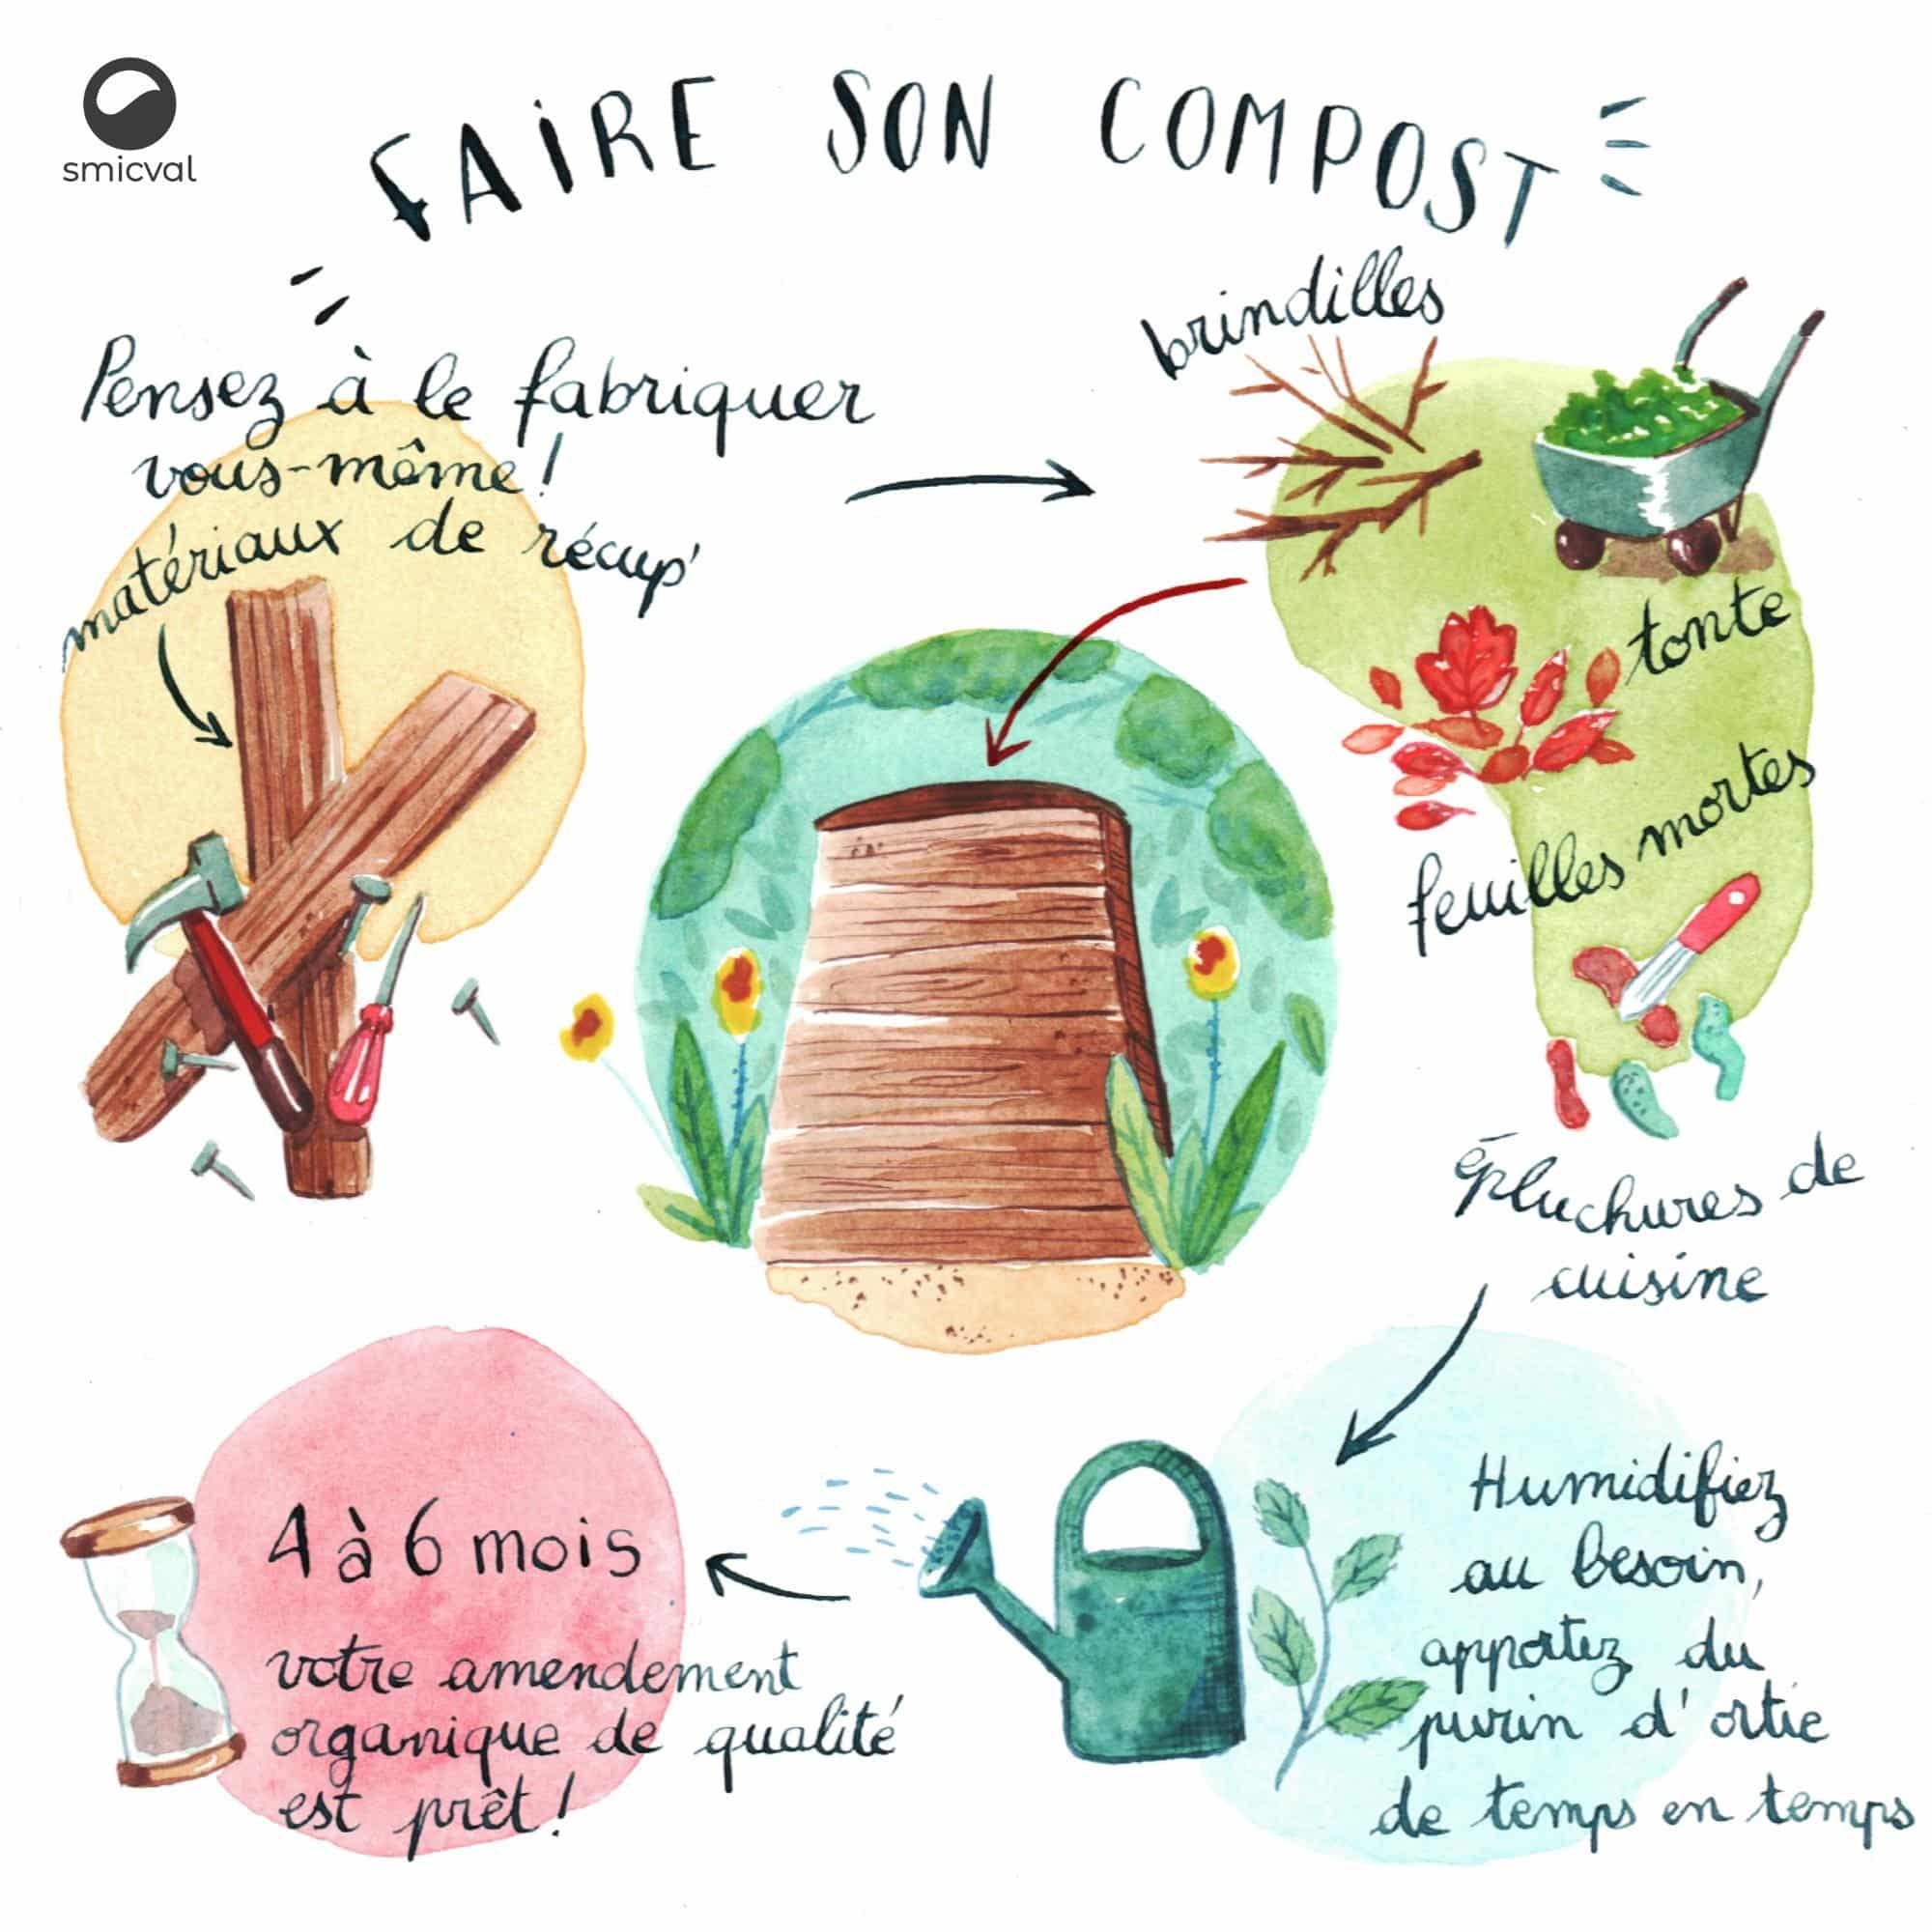 smicval
FAIRE SON COMPOST
Pensez à le fabriquer
vous-même !
matériaux de récup'
brindilles
tonte
feuilles mortes
épluchures de
cuisine
Humidifiez
au besoin,
apportez du
purin d'ortie
de temps en temps
4 à 6 mois
votre amendement
organique de qualité
est prêt !